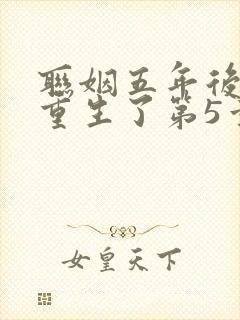 聯姻五年後
重生了第5
女皇天下